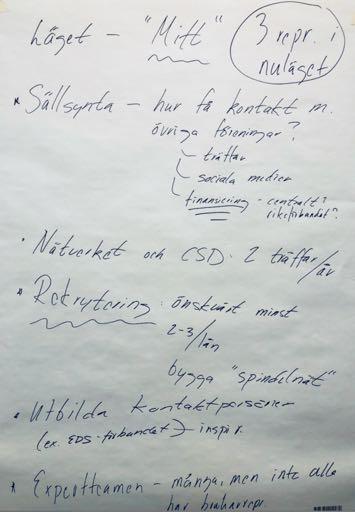 Läget – "Mitt"
3 repr. i
nuläget
* Sällsynta – hur få kontakt m.
övriga föreningar?
– träffar
– sociala medier
– finansiering – centralt?
riksförbundet?
• Nätverket och CSD. 2 träffar/år
* Rekrytering: önskvärt minst
2-3/län
bygga "spindelnät"
* Utbilda kontaktpersoner
(ex. EDS-förbundet) – inspir.
* Expertteamen – många, men inte alla
har brukarrepr.